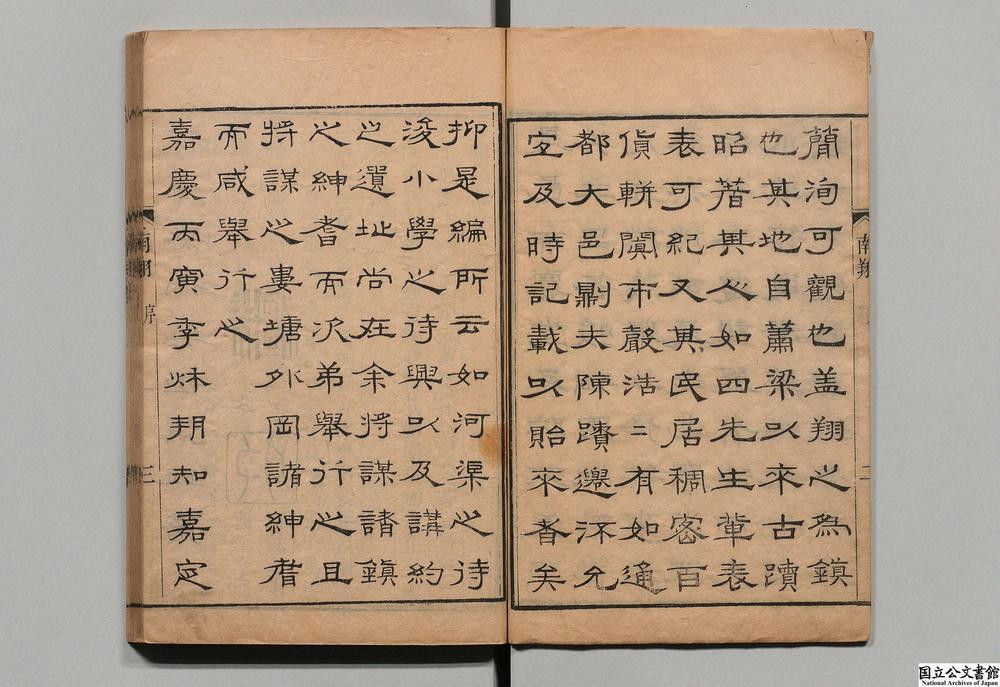 南翔
二
簡洵可觀也盖翔之為鎮
也其地自蕭梁以來古蹟
昭著其人如四先生軰表
表可紀又其民居稠密百
貨輧闐市聲浩二有如通
都大邑則夫陳蹟遐泝允
宜及時記載以貽來者矣
抑是編所云如河渠之待
浚小學之待興以及講約
之遺址尚在余將謀諸鎮
之紳耆而次弟舉行之且
將謀之婁塘外岡諸紳耆
而咸舉行之
嘉慶丙寅季秋朔知嘉定
南翔
序
三
国立公文書館
National Archives of Japan